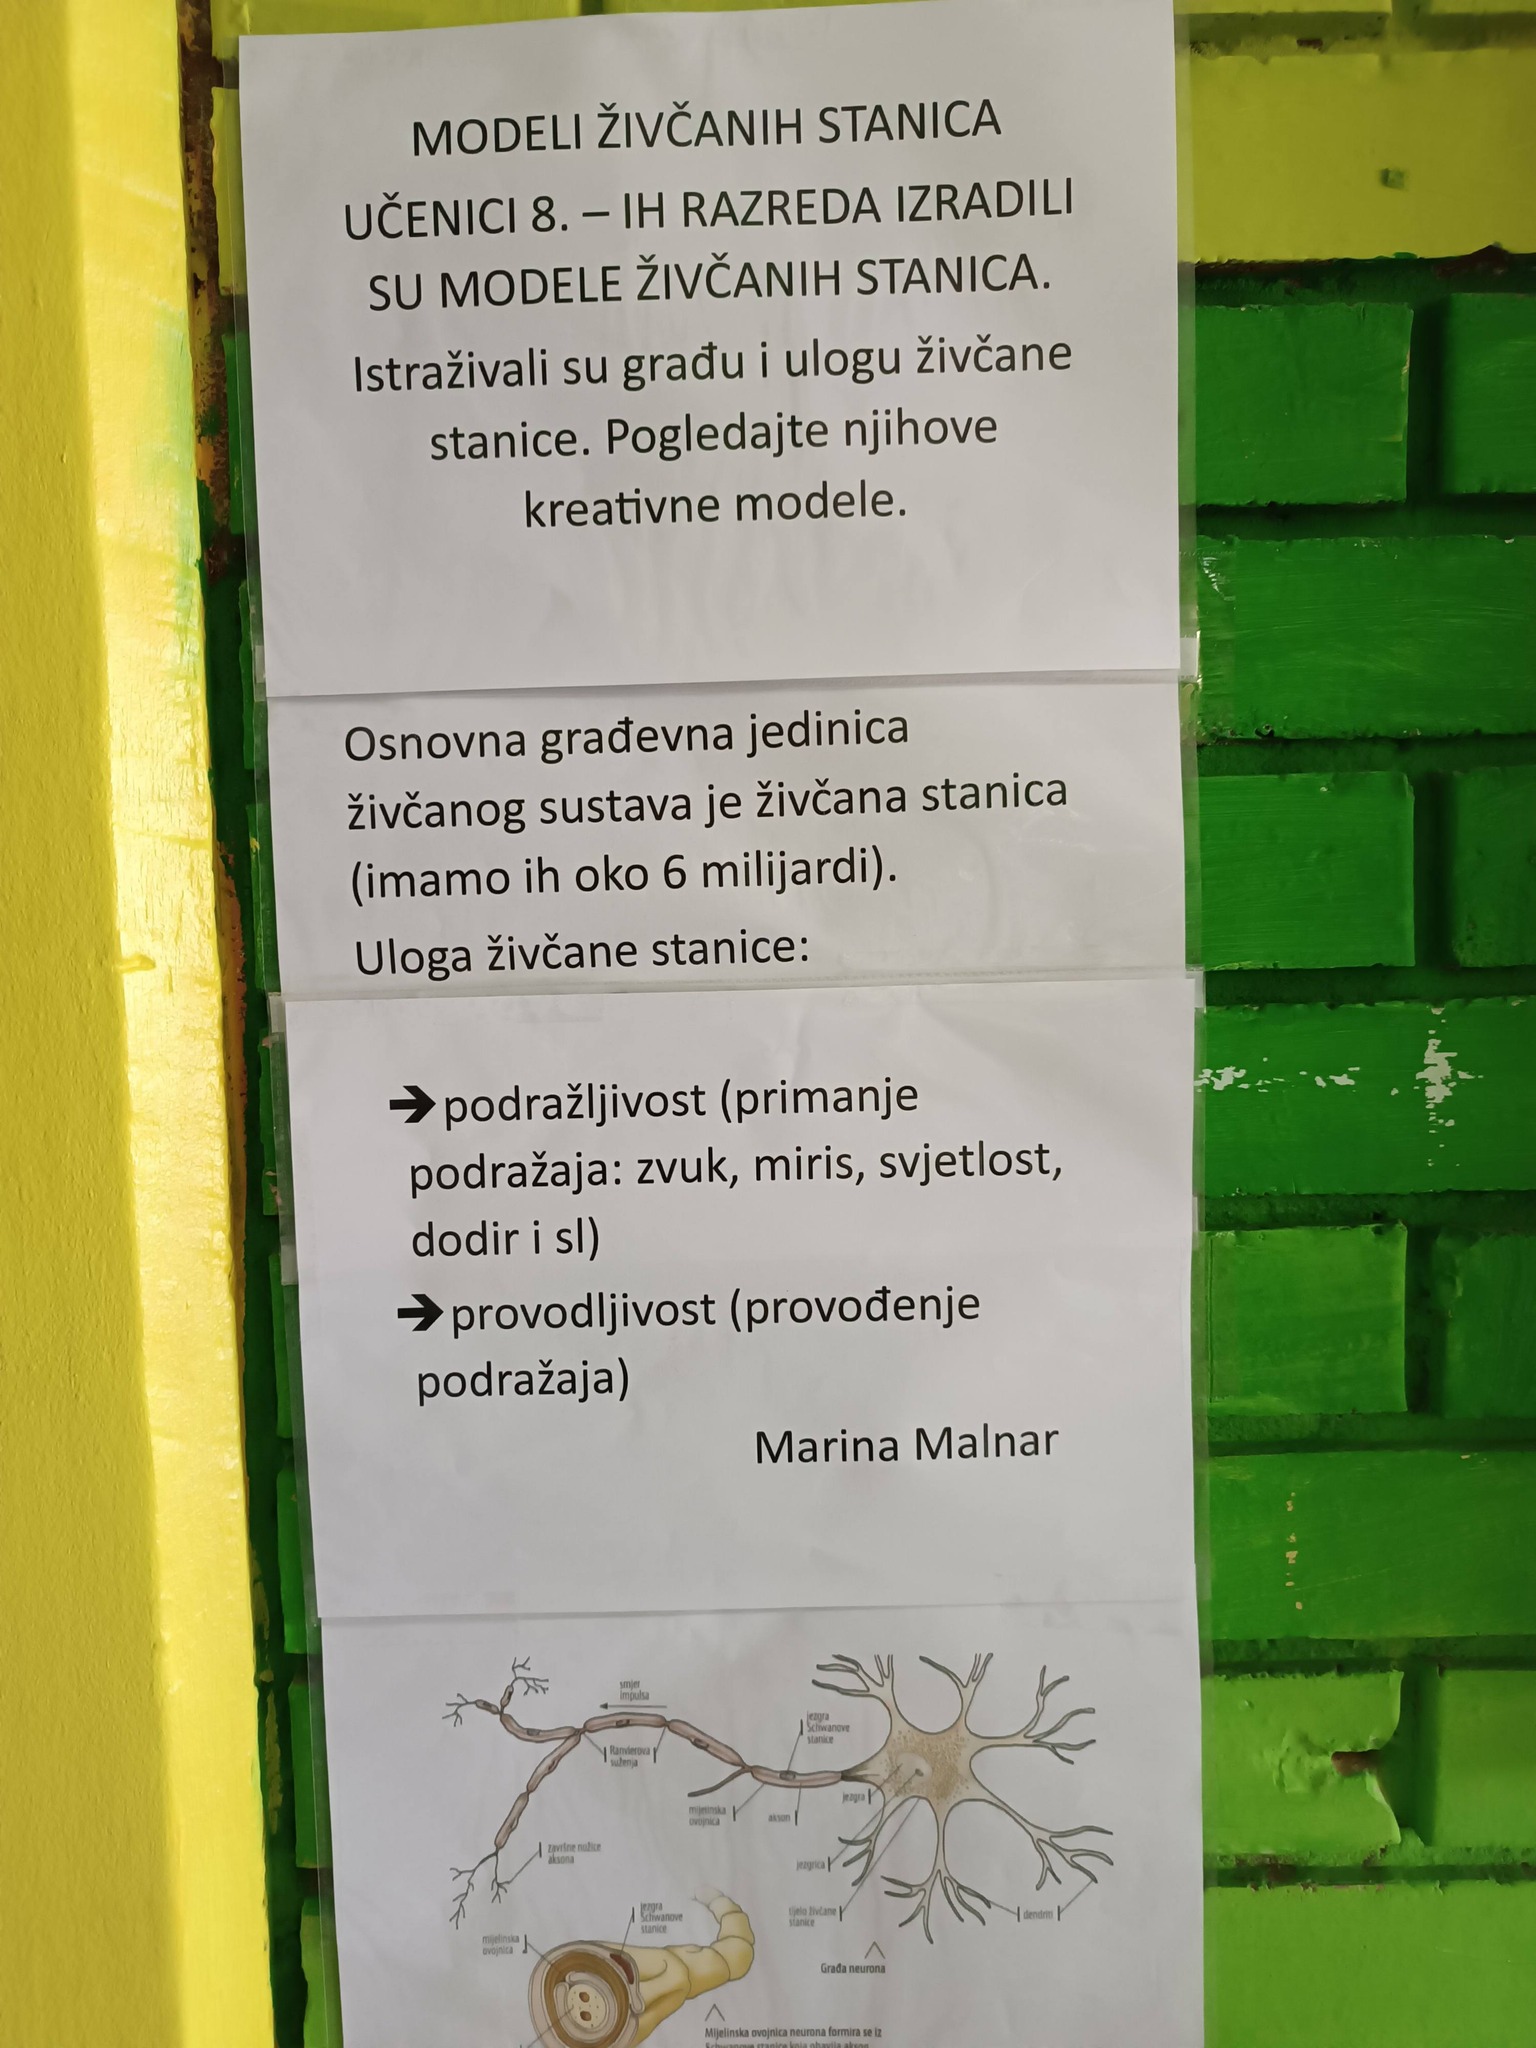 MODELI ŽIVČANIH STANICA
UČENICI 8. – IH RAZREDA IZRADILI
SU MODELE ŽIVČANIH STANICA.
Istraživali su građu i ulogu živčane
stanice. Pogledajte njihove
kreativne modele.
Osnovna građevna jedinica
živčanog sustava je živčana stanica
(imamo ih oko 6 milijardi).
Uloga živčane stanice:
➔podražljivost (primanje
podražaja: zvuk, miris, svjetlost,
dodir i sl)
➔provodljivost (provođenje
podražaja)
Marina Malnar
smjer
impulsa
jezgra
Schwanove
stanice
Ranvierova
suženja
jezgra
mijelinska
ovojnica
akson
završne nožice
aksona
jezgrica
tijelo živčane
stanice
dendriti
Građa neurona
jezgra
Schwanove
stanice
mijelinska
ovojnica
Mijelinska ovojnica neurona formira se iz
Schwanove stanice koja obavija akson